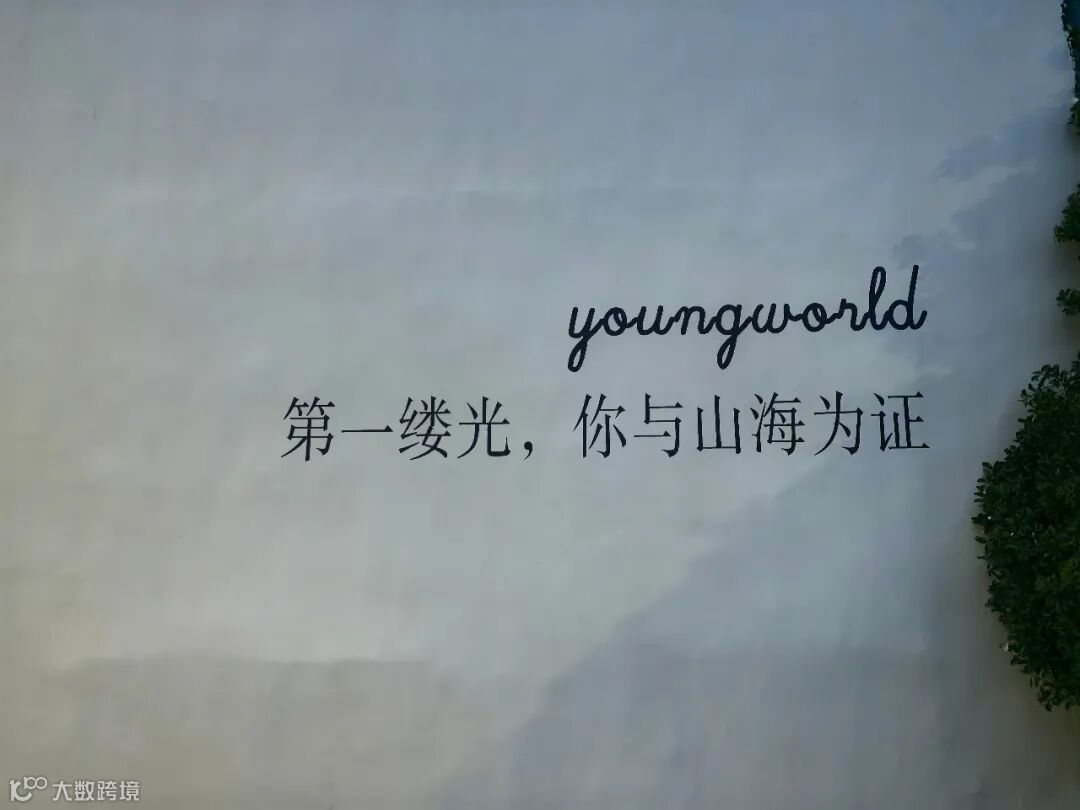 youngworld
第一缕光，你与山海为证
大数跨境